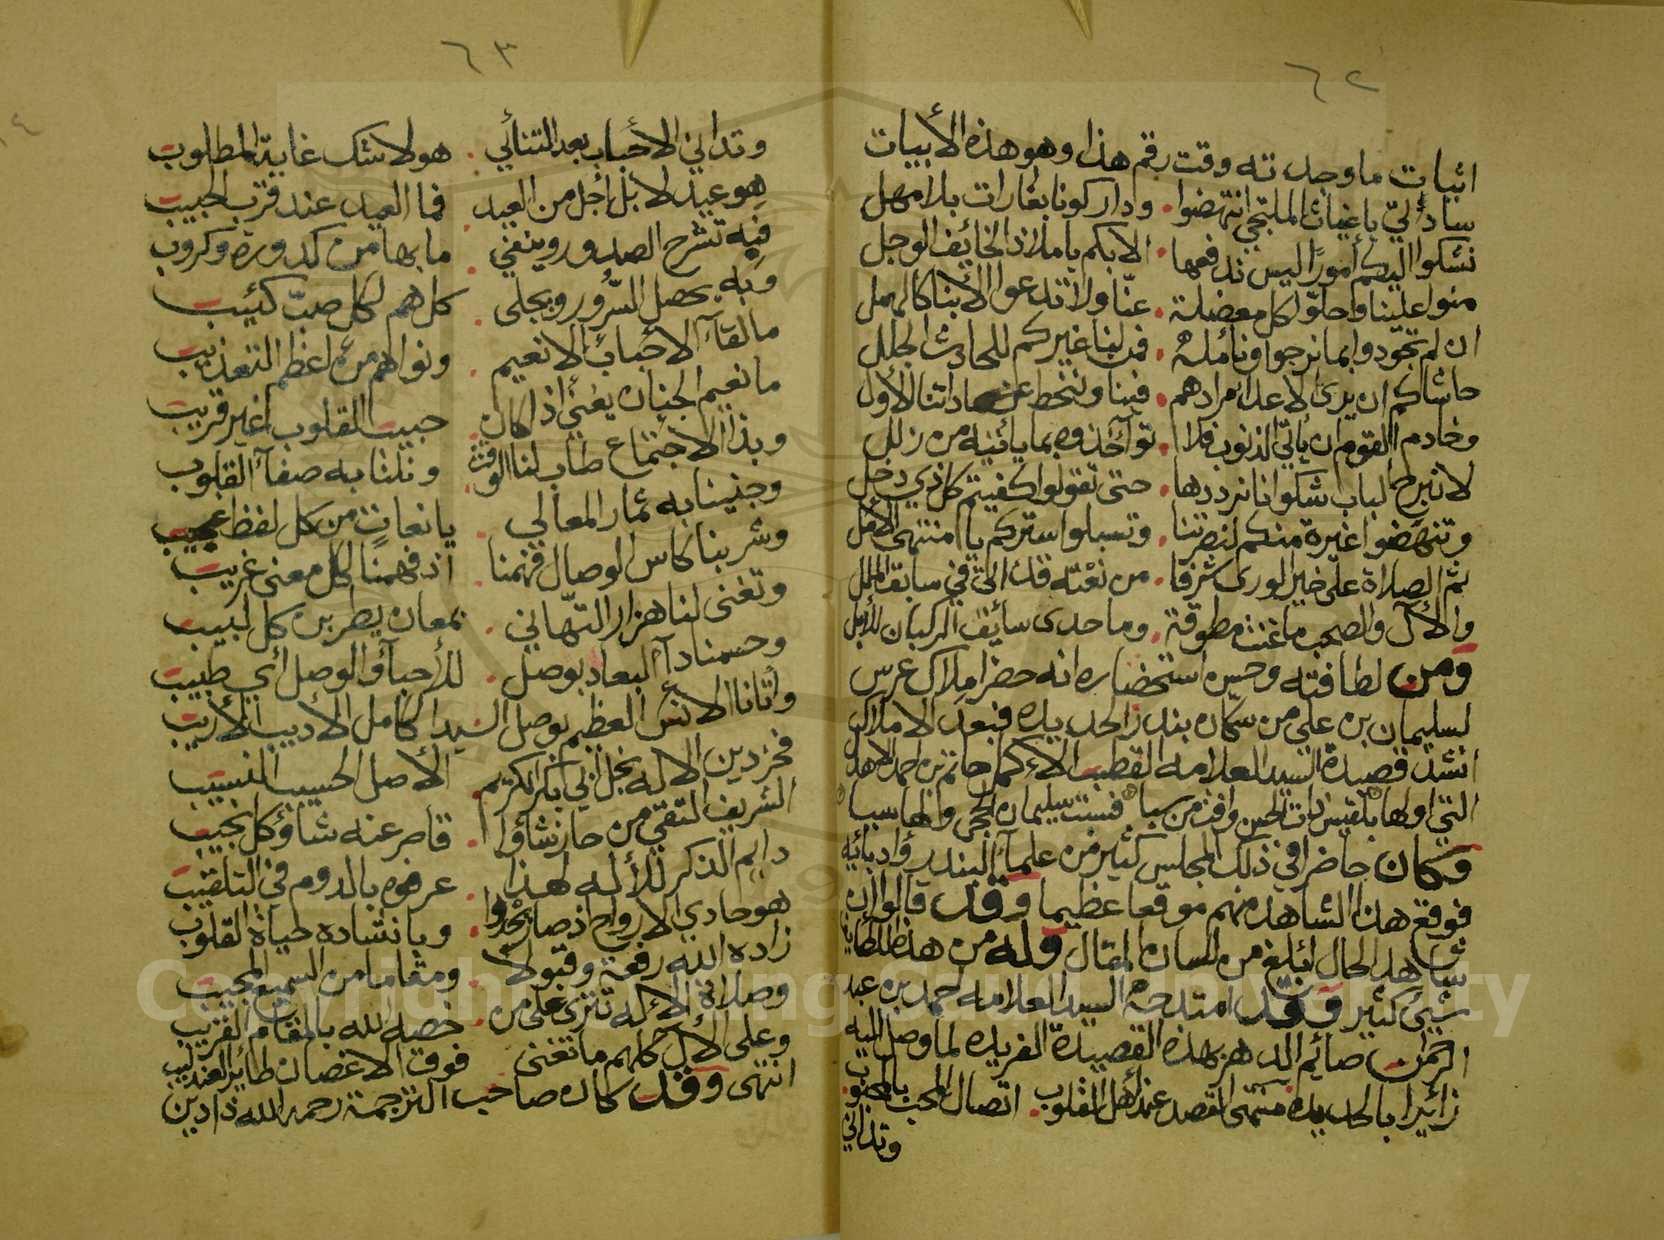 ٦٢
اثبات ما وجدته وقت رقم هذا وهو هذه الأبيات
ساداتي يا غياث الملتجي انتهضوا . وداركونا بغارات بلا مهل
نشكوا اليكم أمورًا ليس ندفعها . الا بكم يا ملاذ الخائف الوجل
منوا علينا وحلوا كل معضلة . عنا ولا تدعوا الأبنا كالهمل
ان لم تجودوا بما نرجوا ونأمله . فمن لنا غيركم للحادث الجلل
حاشاكم ان يرى الاعدا مرادهم . فينا وننحط عن عاداتنا الأول
وخادم القوم ان يأتي الذنوب فلا . تواخذوه بما يأتيه من زلل
لا نبرح الباب شكوانا نرددها . حتى تقولوا كفيتم كل ذي دخل
وتنهضوا غيرة منكم لنصرتنا . وتسبلوا ستركم يا منتهى الأمل
ثم الصلاة على خير الورى شرفا . من نعته قد اتى في سابق الملل
والآل والصحب ما غنت مطوقة . وما حدى سائق الركبان للأبل
ومن لطافته وحسن استحضاره انه حضر املاك عرس
لسليمان بن علي من سكان بندر الحديده فبعد الاملاك
انشد قصيدة السيد العلامه القطب الأكمل حاتم بن احمد الاهدل
التي اولها بلقيس ذات الحسن وافت من سبا فسبت سليمان الحجى ولها سبا
وكان حاضرا في ذلك المجلس كثير من علماء البندر وأدبائه
فوقع هذا الشاهد منهم موقعا عظيما وقد قالوا ان
شاهد الحال ابلغ من لسان المقال وله من هذه اللطايف
شيئ كثير وقد امتدحه السيد العلامه حمد بن عبد
الرحمن صائم الدهر بهذه القصيدة الفريده لما وصل اليه
زائرا بالحديده منتهى القصد عند أهل القلوب . اتصال المحب بالمحبوب
وتداني
٦٣
وتداني الأحباب بعد التنائي . هو لا شك غاية المطلوب
هو عيد لا بل اجل من العيد . فما العيد عند قرب الحبيب
فيه تشرح الصدور وينفي . ما بها من كدورة وكروب
وبه يحصل السرور ويجلى . كل هم لكل صب كئيب
ما لقاء الأحباب الا نعيم . ونواهم من اعظم التعذيب
ما نعيم الجنان يعني اذا كان . حبيب القلوب غير قريب
وبذا الاجتماع طاب لنا الوقت . ونلنا به صفاء القلوب
وجنينا به ثمار المعالي . يانعات من كل لفظ عجيب
وشربنا كاس الوصال فهمنا . اذ فهمنا لكل معنى غريب
وتغنى لنا هزار التهاني . بمعان يطربن كل لبيب
وحسمنا داء البعاد بوصل . للأحباء والوصل أي طبيب
وأتانا الانس العظيم بوصل السيد الكامل الاديب الأريب
فخر دين الاله نجل أبي بكر الكريم . الأصل الحسيب النسيب
الشريف التقي من حاز شأوا . قاصر عنه شاؤ كل نجيب
دايم الذكر للأله لهذا . عرفوه بالدوم في التلقيب
هو حادي الارواح اذ صار يحدوا . وبانشاده حياة القلوب
زاده الله رفعة وقبولا . ومقاما من السميع المجيب
وصلاة الأله تترى على من . خصه الله بالمقام القريب
وعلى الآل كلهم ما تغنى . فوق الاغصان طائر العندليب
انتهى وقد كان صاحب الترجمة رحمه الله ذا دين